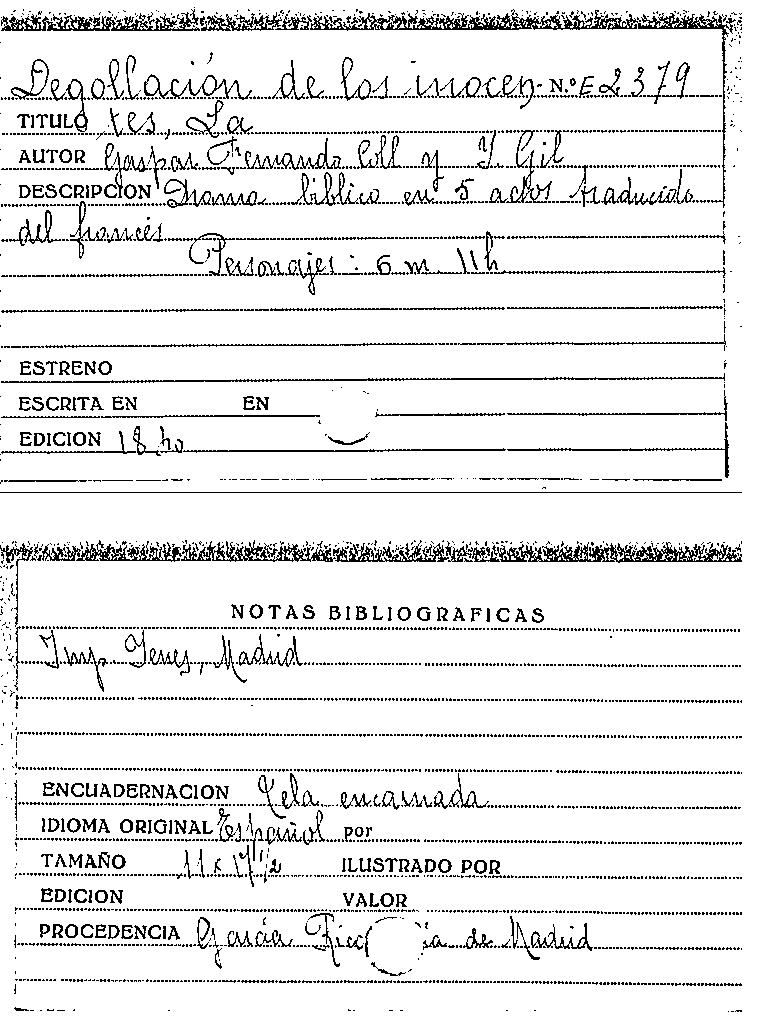 Degollación de los inocen- N.º E 2379
TITULO tes, La
AUTOR Gaspar Fernando Coll y I. Gil
DESCRIPCION Drama bíblico en 5 actos traducido
del francés
Personajes: 6 m. 11h
ESTRENO
ESCRITA EN EN
EDICION
NOTAS BIBLIOGRAFICAS
Imp. Yenes, Madrid
ENCUADERNACION Tela encarnada
IDIOMA ORIGINAL Español por
TAMAÑO 11 x 17 1/2 ILUSTRADO POR
EDICION VALOR
PROCEDENCIA García Rico de Madrid